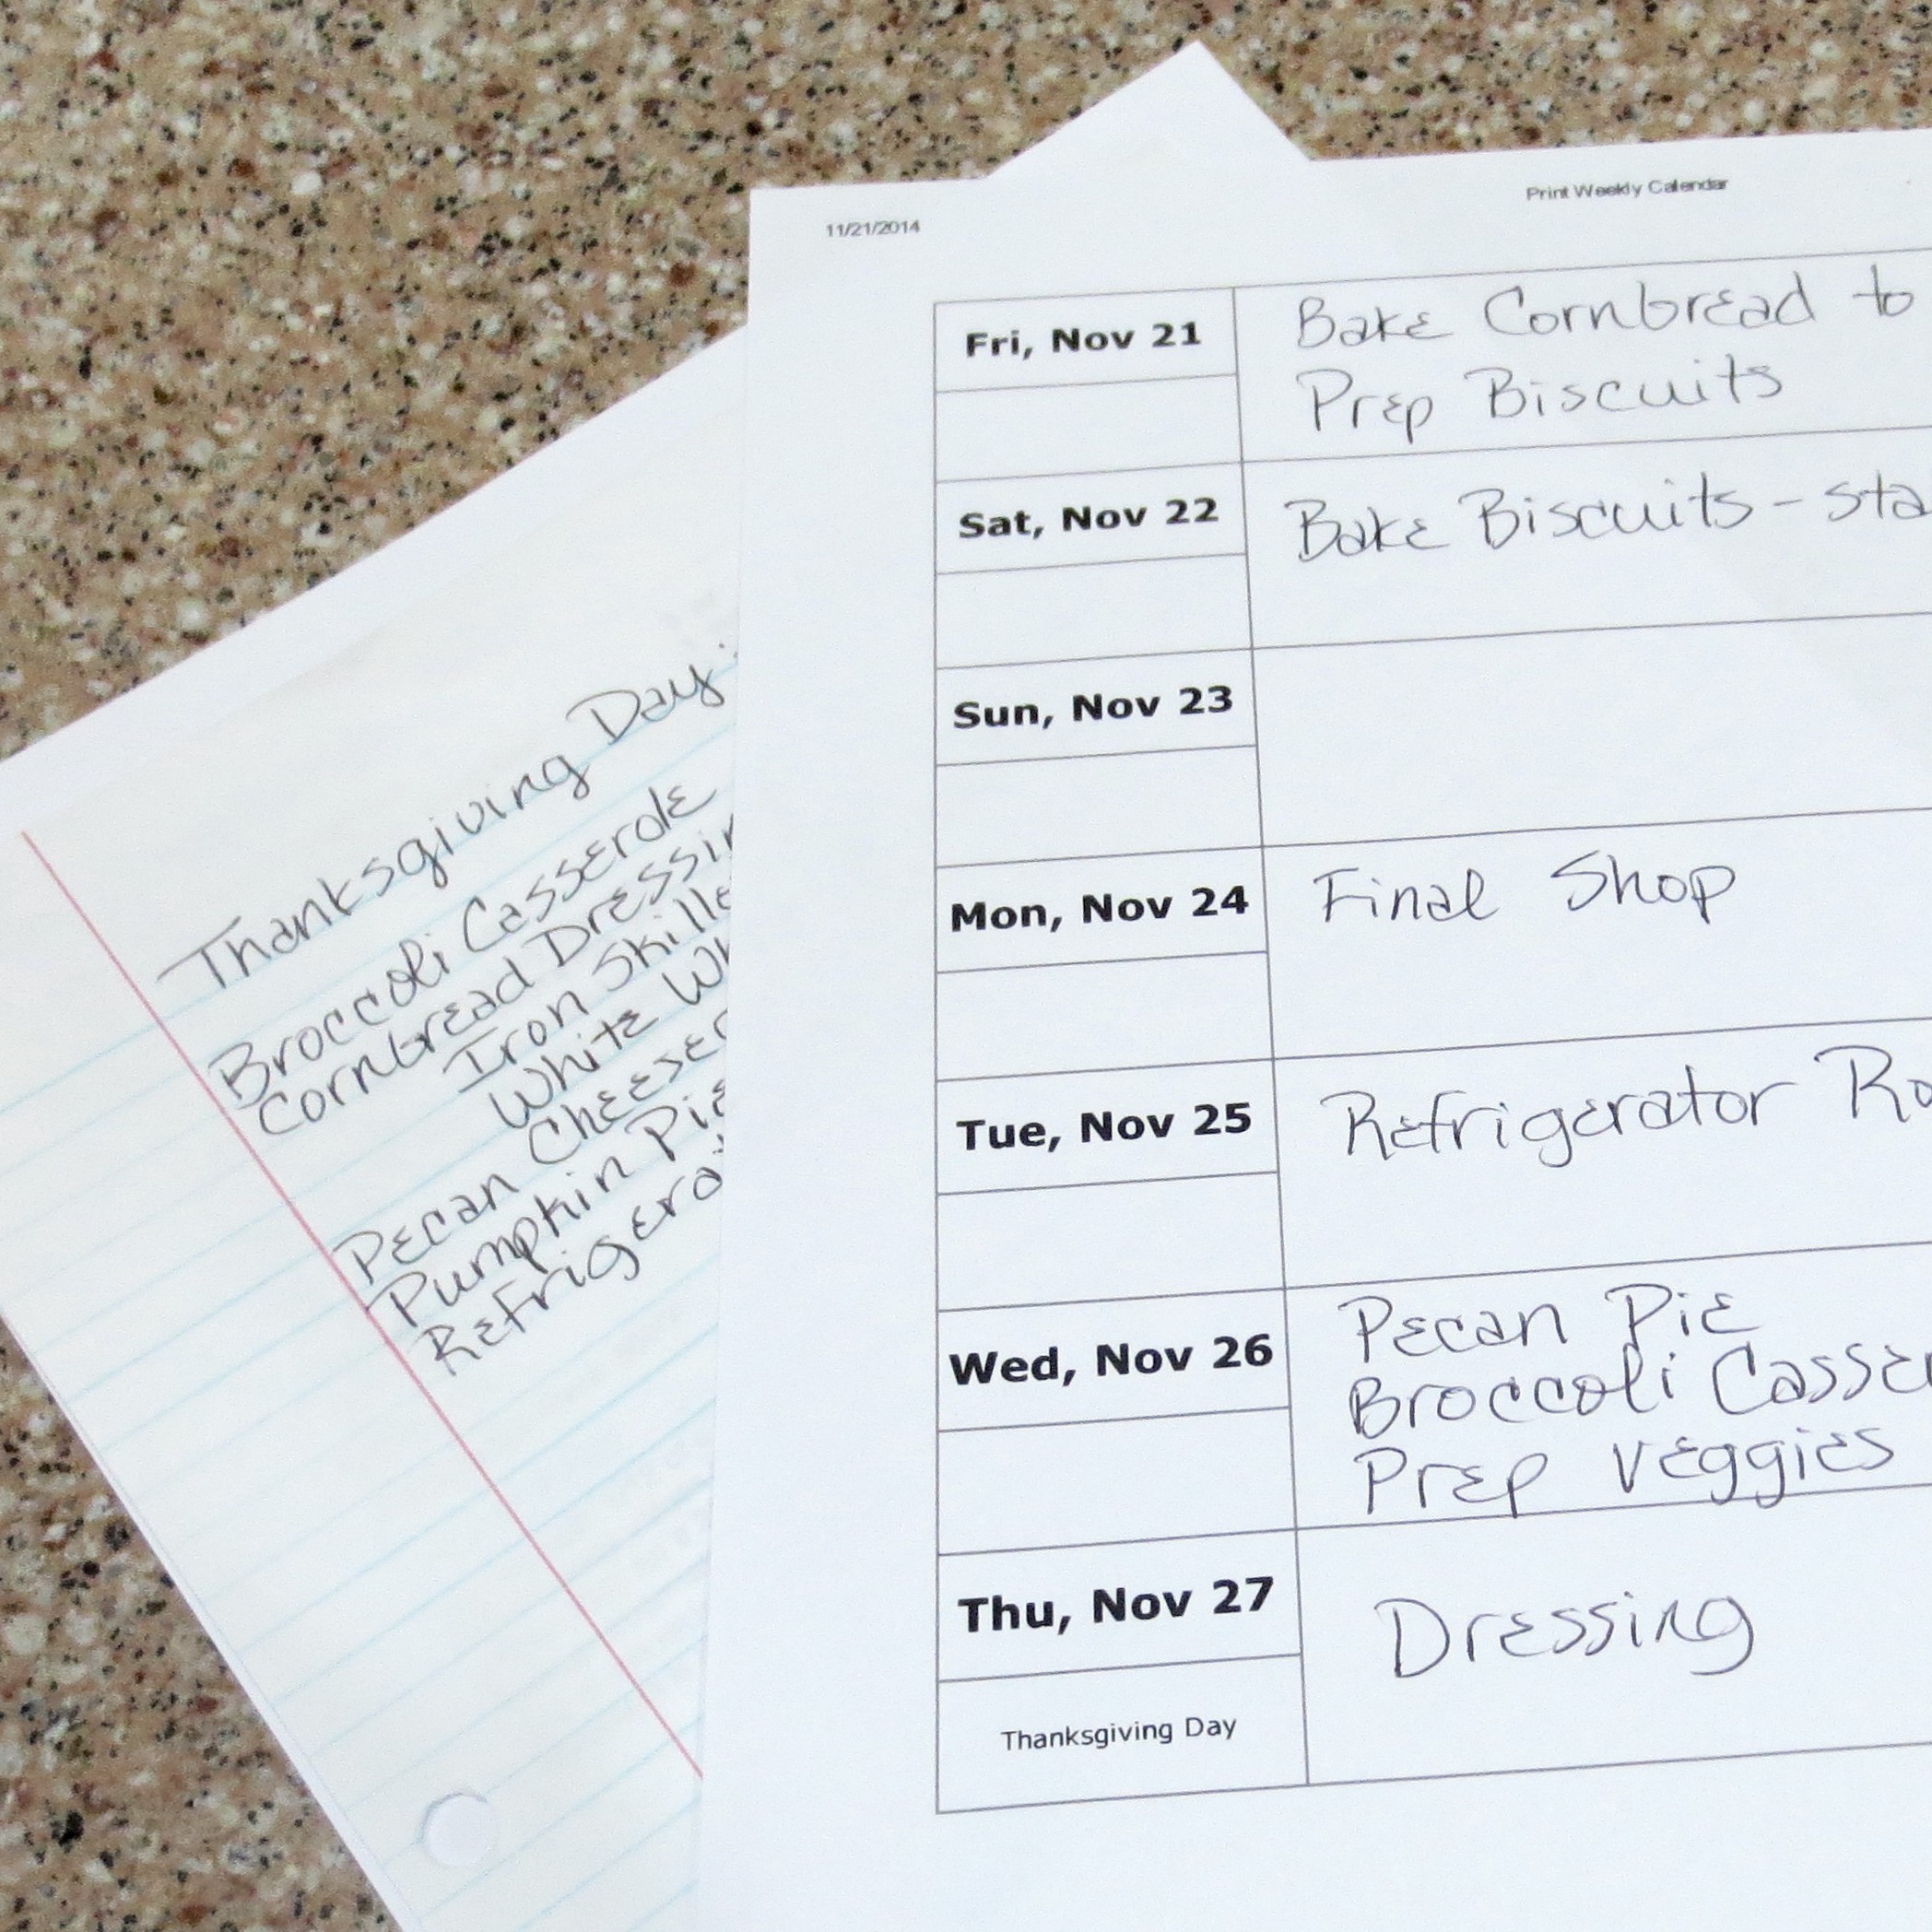 Thanksgiving Day:
Broccoli Casserole
Cornbread Dressin
Iron Skille
White Wh
Cheeser
Pecan
Pumpkin Pie
Refrigera
11/21/2014
Print Weekly Calendar
Fri, Nov 21
Bake Cornbread to
Prep Biscuits
Sat, Nov 22
Bake Biscuits - sta
Sun, Nov 23
Mon, Nov 24
Final Shop
Tue, Nov 25
Refrigerator Ro
Wed, Nov 26
Pecan Pie
Broccoli Casser
Prep Veggies
Thu, Nov 27
Dressing
Thanksgiving Day